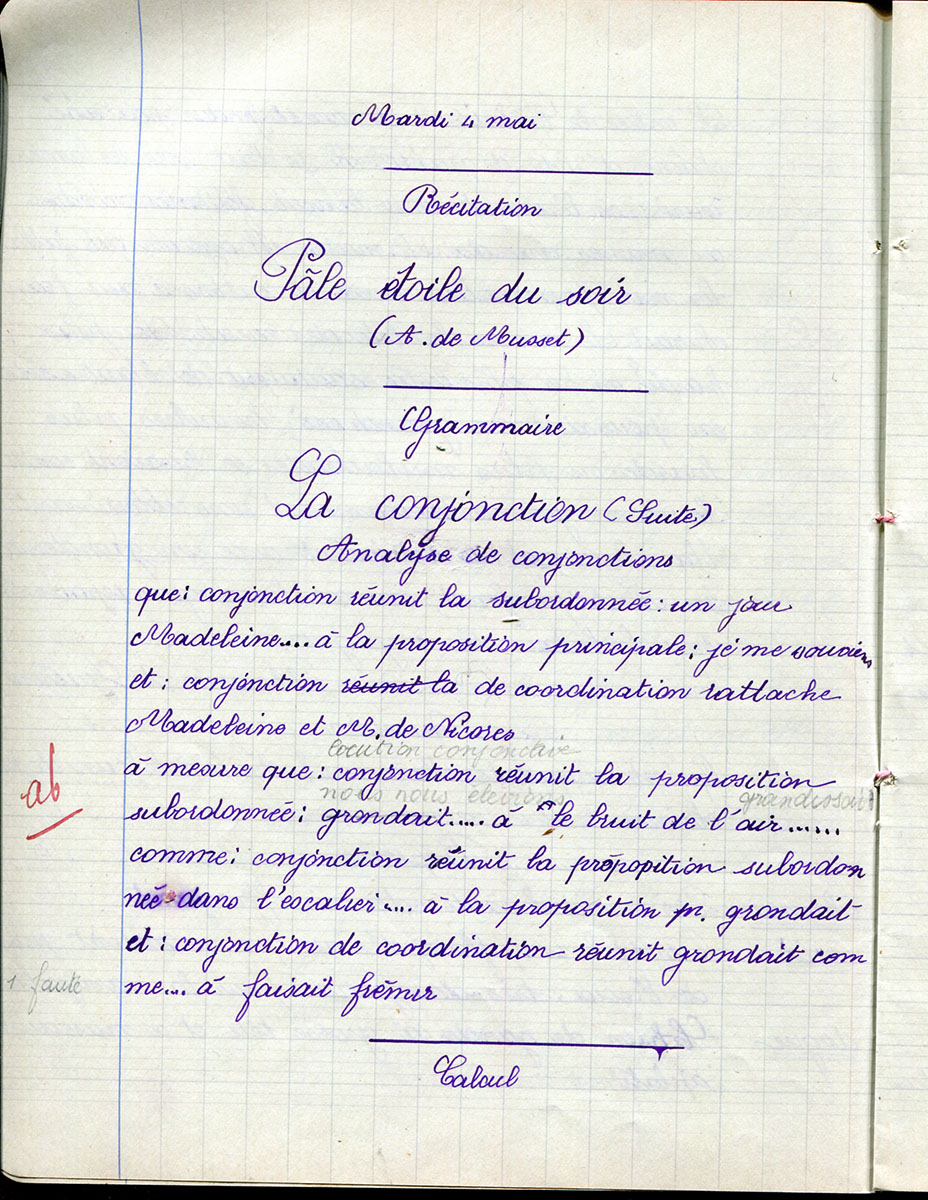 Mardi 4 mai
Récitation
Pâle étoile du soir
(A. de Musset)
Grammaire
La conjonction (Suite)
Analyse de conjonctions
que : conjonction réunit la subordonnée : un jour
Madeleine.... à la proposition principale : je me souviens
et : conjonction réunit la de coordination rattache
Madeleine et M. de Nicores
locution conjonctive
à mesure que : conjonction réunit la proposition
nous nous élevions grandissait
subordonnée : grondait..... à le bruit de l'air......
ab
comme : conjonction réunit la préposition subordon
née dans l'escalier.... à la proposition pr. grondait
et : conjonction de coordination réunit grondait com
1 faute
me... à faisait frémir
Calcul